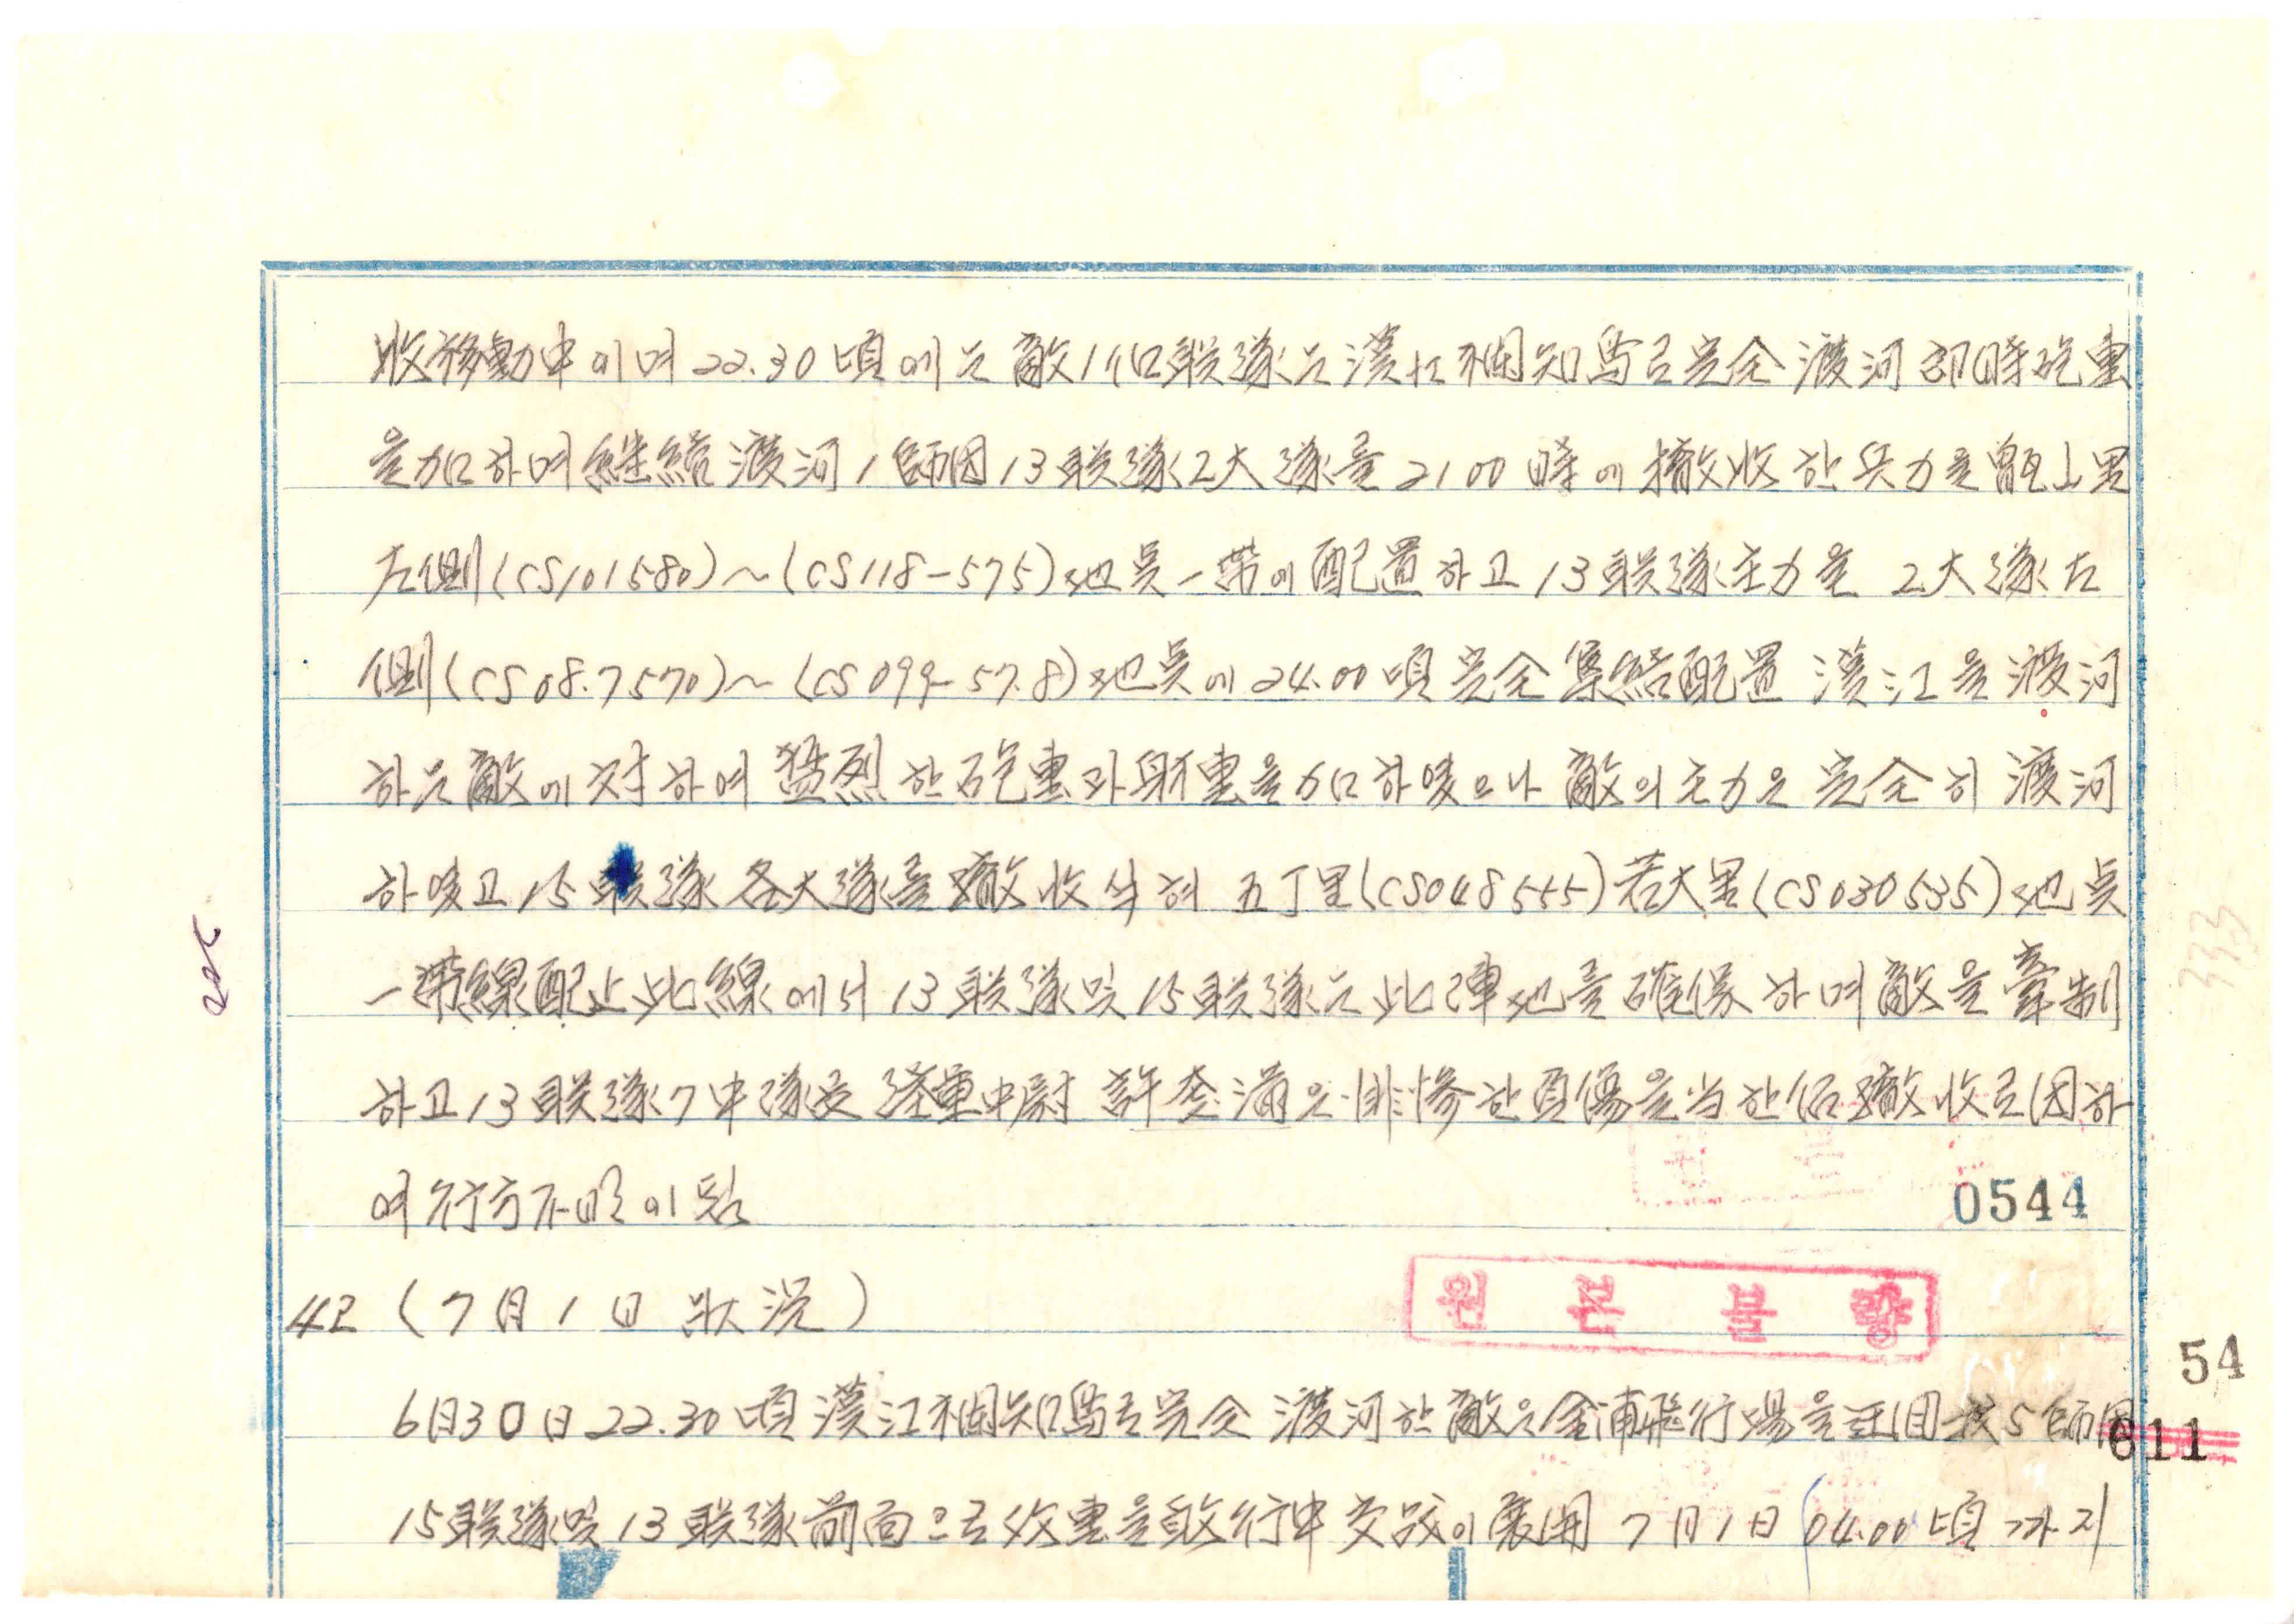 收移動中이며 22.30頃에는 敵1個联隊는 漢江 知 로 完全 渡河 卽時 砲擊
을 加하여 継続 渡河 1師団 13联隊 2大隊를 2100時에 撤收한 兵力을 甑山里
左側(CS101580)~(CS118-575)地点 一帶에 配置하고 13联隊主力을 2大隊左
側(CS08.7570)~(CS099-57.8)地点에 24.00頃 完全 集結配置 漢江을 渡河
하는 敵에 対하여 猛烈한 砲擊과 射擊을 加하였으나 敵의 主力은 完全히 渡河
하였고 15联隊 各大隊를 撤收식혀 五丁里(CS048555) 若大里(CS030535)地点
一帶線配 此線에서 13联隊및 15联隊는 此陣地를 確保하며 敵을 牽制
하고 13联隊 7中隊長 陸軍中尉 許 満은 悲惨한 負傷을 当한 後 撤收로 因하
여 行方不明이 됨
0544
42 (7月1日 狀況)
원본불량
54
6月30日 22.30頃 漢江 知 로 完全 渡河한 敵은 金浦飛行場을 迂回 我5師団
611
15联隊및 13联隊前面으로 攻擊을 敢行中 交戰이 展開 7月1日 (04.00頃까지
225
333